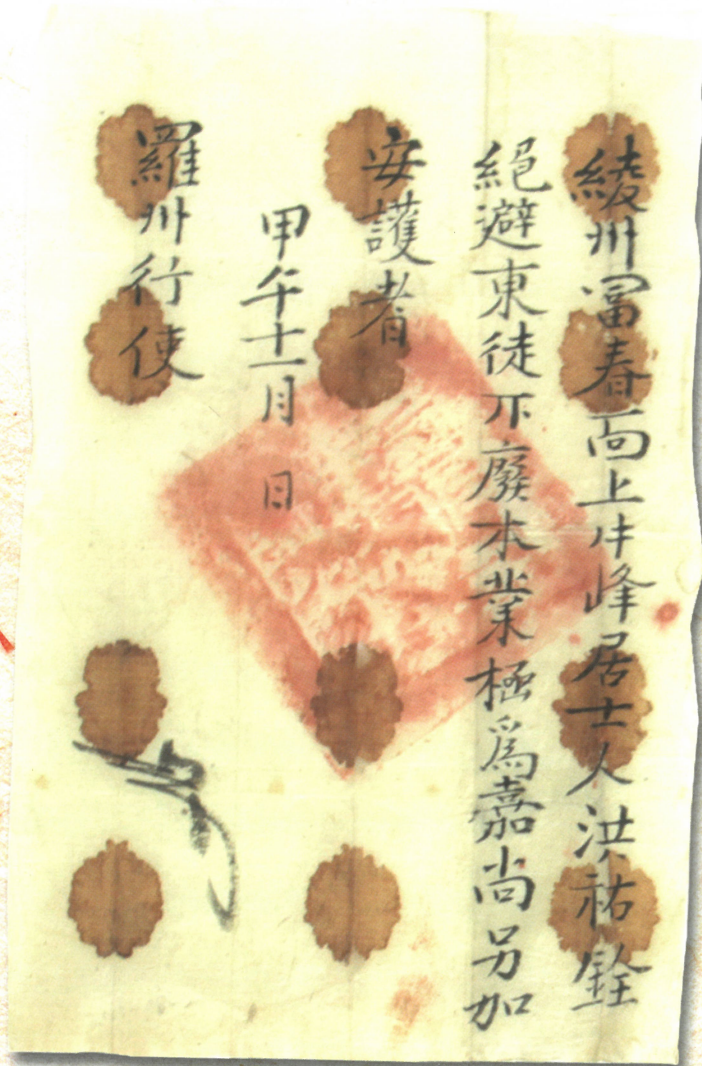 綾州冨春面上牛峰居士人洪祐銓
絕避東徒不廢本業極爲嘉尚另加
安護者
甲午十一月 日
羅州行使